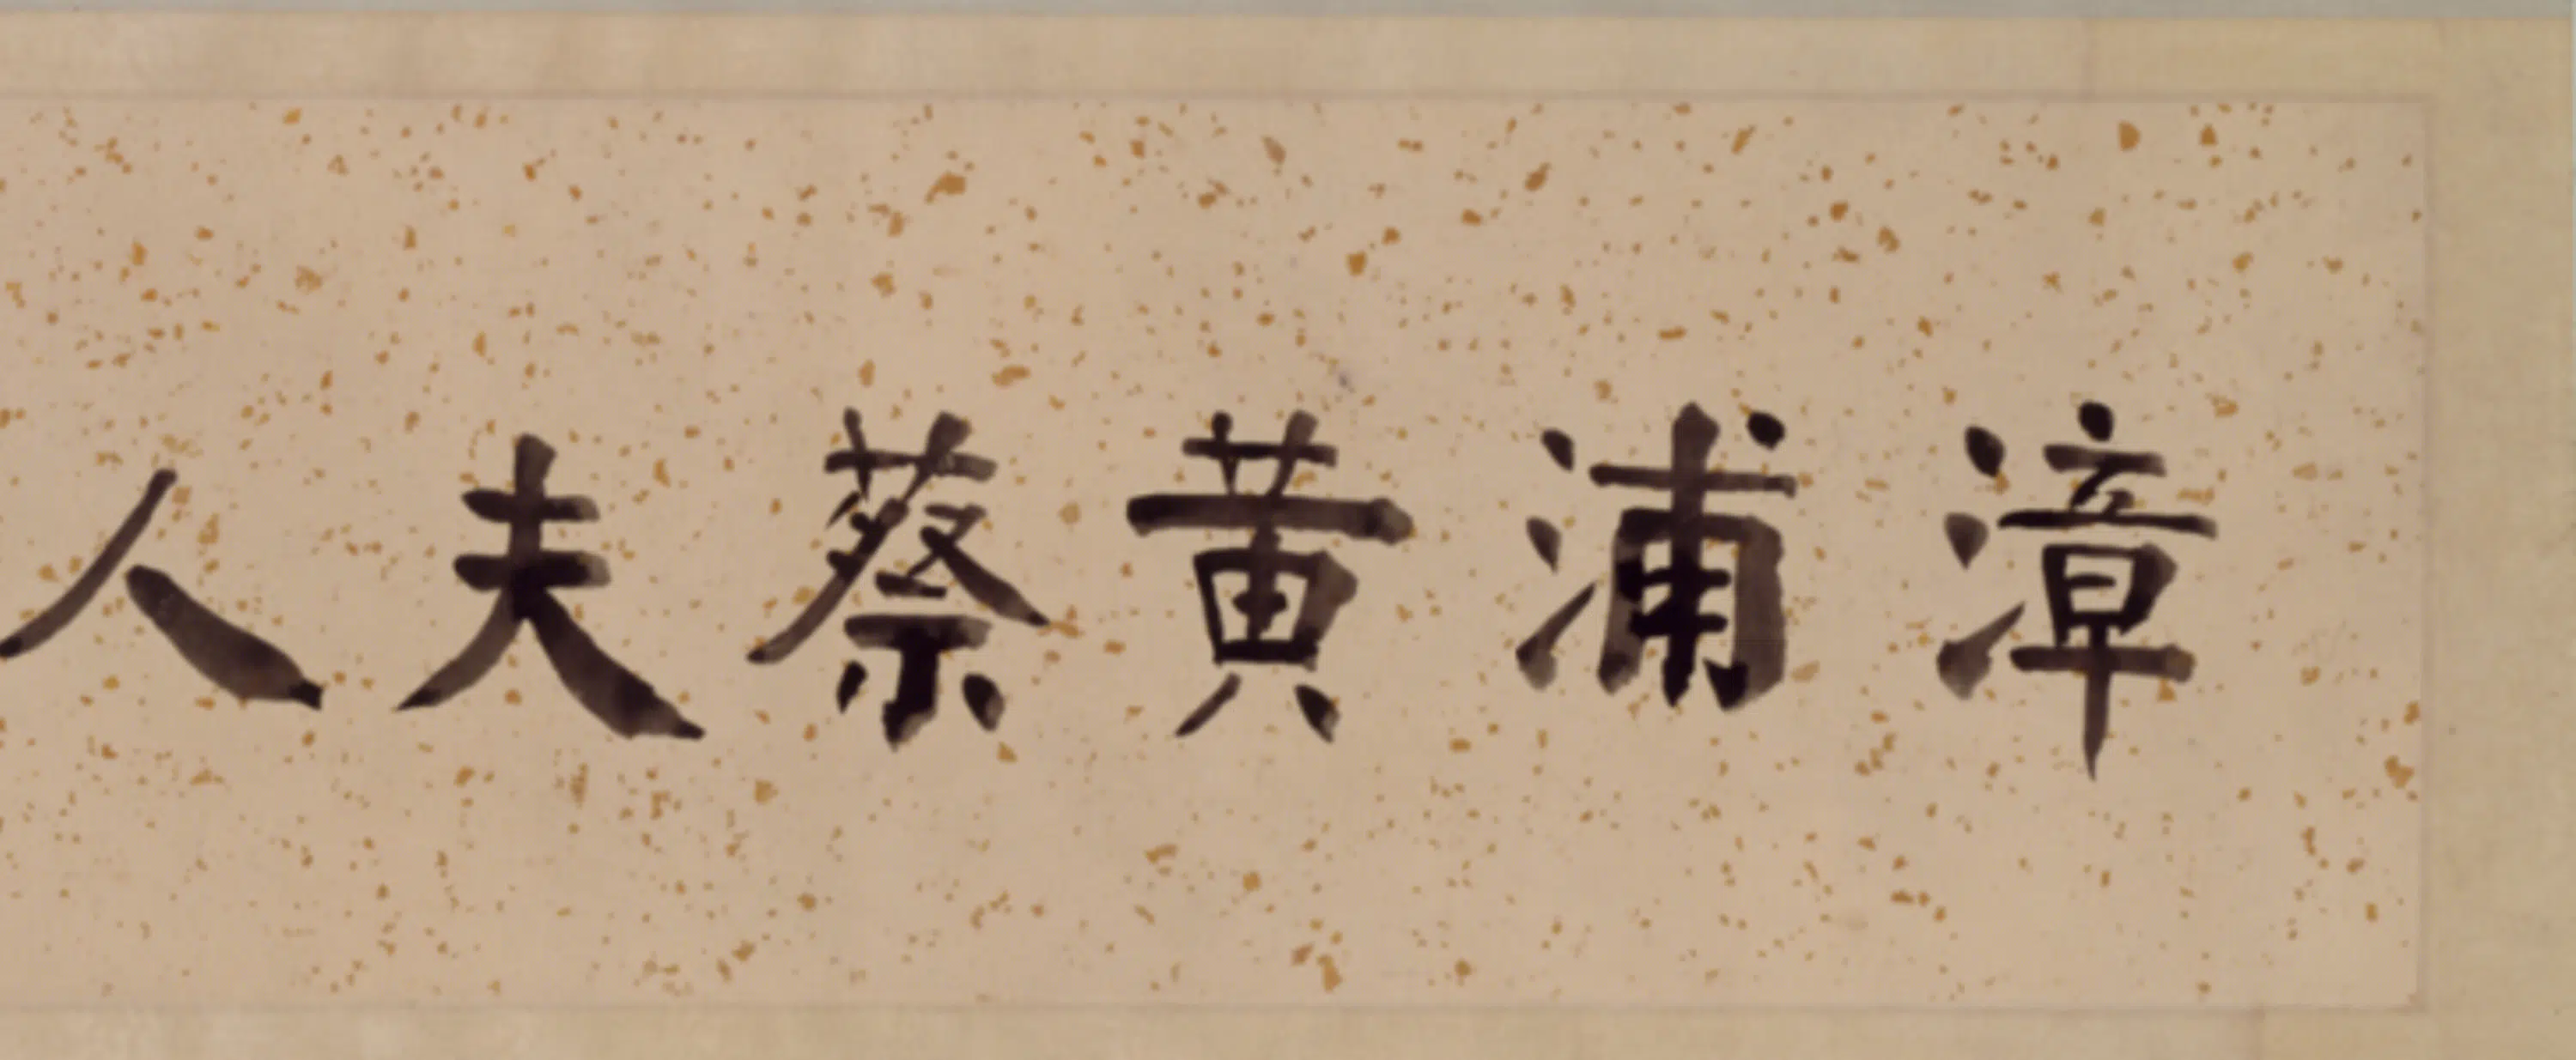 漳浦黃蔡夫人